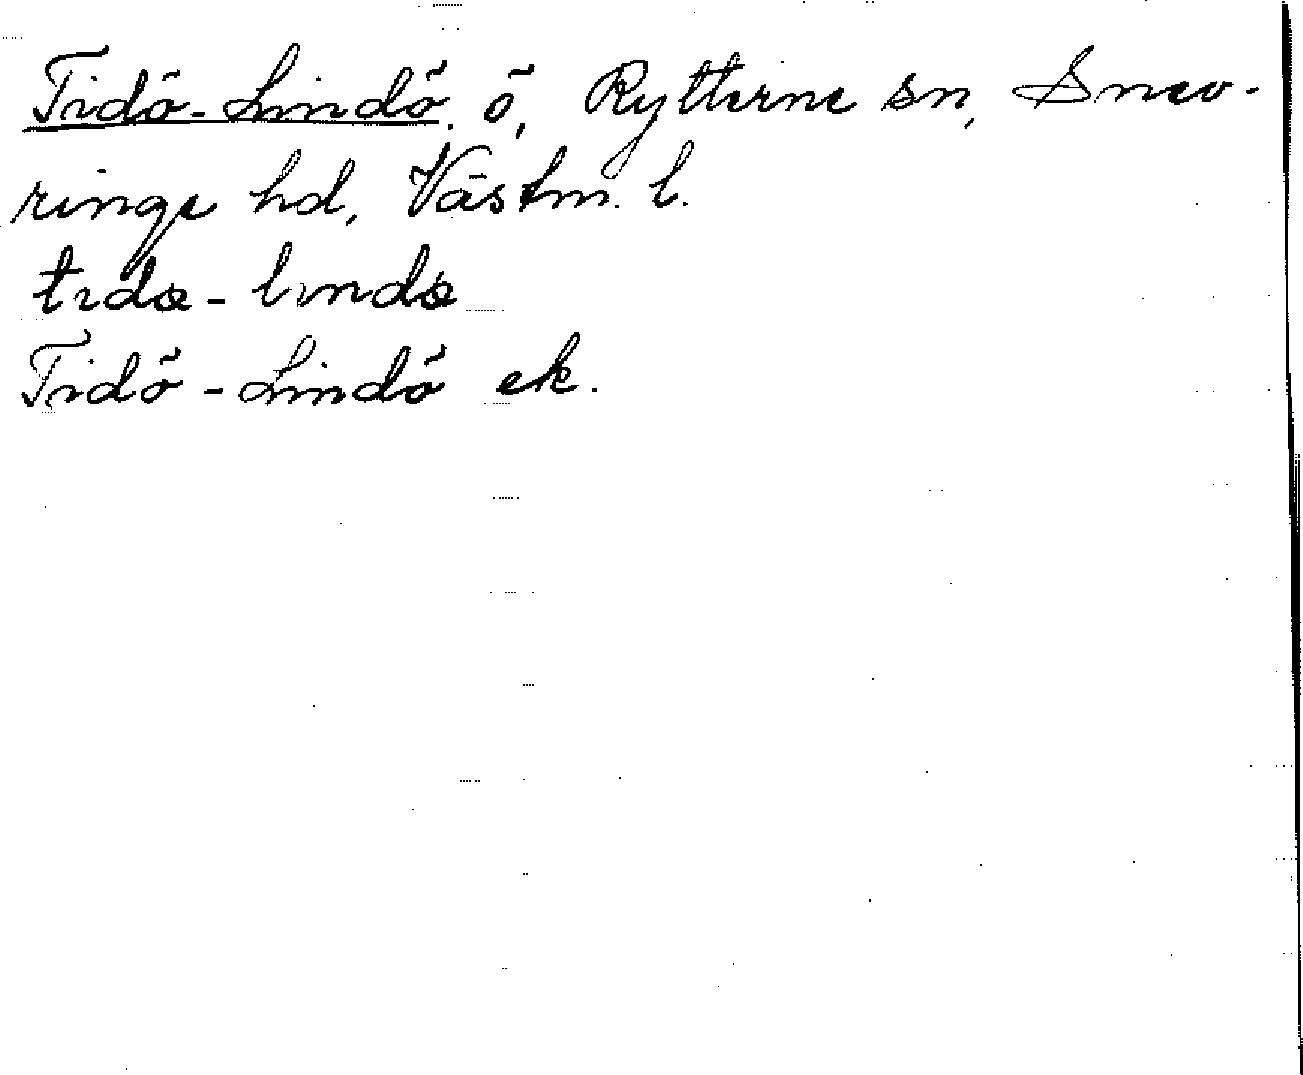 Tidö-Lindö. ö, Rytterne sn, Snev-
ringe hd, Västm. l.
tıdœ-lındœ
Tidö-Lindö ek.